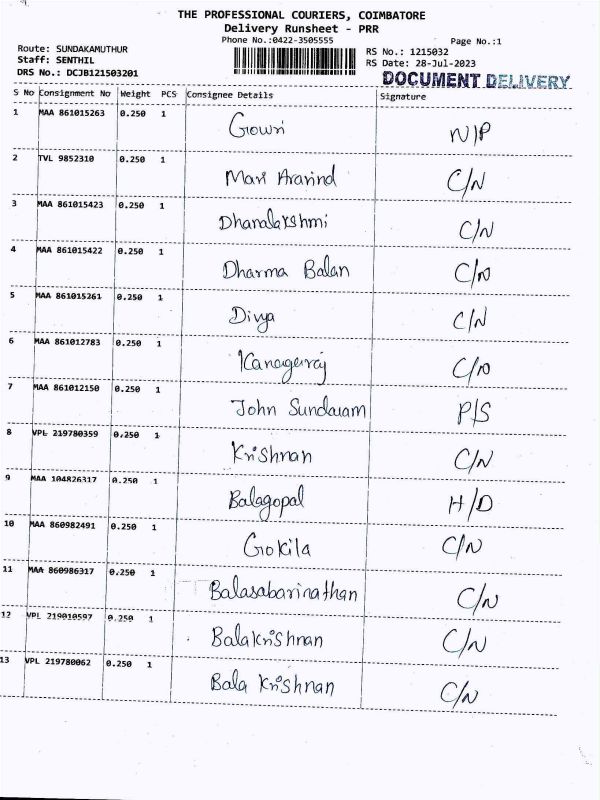 THE PROFESSIONAL COURIERS, COIMBATORE
Delivery Runsheet - PRR
Phone No.:0422-3505555
Page No.:1
Route: SUNDAKAMUTHUR
Staff: SENTHIL
DRS No.: DCJB121503201
RS No.: 1215032
RS Date: 28-Jul-2023
DOCUMENT DELIVERY
S No Consignment No Weight PCS Consignee Details Signature
1 MAA 861015263 0.250 1 Gowri N/P
2 TVL 9852310 0.250 1 Mari Aravind C/N
3 MAA 861015423 0.250 1 Dhanalakshmi C/N
4 MAA 861015422 0.250 1 Dharma Balan C/N
5 MAA 861015261 0.250 1 Divya C/N
6 MAA 861012783 0.250 1 Kanagaraj C/N
7 MAA 861012150 0.250 1 John Sundaram P/S
8 VPL 219780359 0.250 1 Krishnan C/N
9 MAA 104826317 0.250 1 Balagopal H/D
10 MAA 860982491 0.250 1 Gokila C/N
11 MAA 860986317 0.250 1 Balasabarinathan C/N
12 VPL 219010597 0.250 1 Balakrishnan C/N
13 VPL 219780062 0.250 1 Bala Krishnan C/N